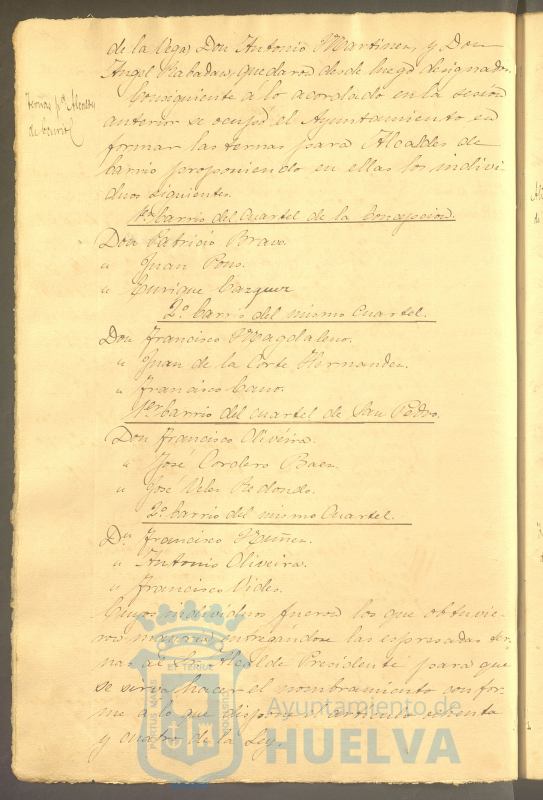 de la Vega, Don Antonio Martinez, y Don
Angel Rabadan, quedaron desde luego designados.
Ternas pª Alcaldes
de barrio
Consiguiente a lo acordado en la sesion
anterior se ocupó el Ayuntamiento en
formar las ternas para Alcaldes de
barrio proponiendo en ellas los indivi-
duos siguientes.
1er barrio del Cuartel de la Concepcion.
Don Patricio Bravo.
" Juan Pons.
" Enrique Vazquez
2º barrio del mismo Cuartel.
Don Francisco Magdaleno.
" Juan de la Corte Hernandez.
" Francisco Cano.
1er barrio del cuartel de San Pedro.
Don Francisco Oliveira.
" José Cordero Baez.
" José Velez Redondo.
2º barrio del mismo Cuartel.
Dn Francisco Nuñez.
" Antonio Oliveira.
" Francisco Vides.
Cuyos individuos fueron los que obtuvie-
ron mayoria entregandose las espresadas ter-
nas al Sr. Alcalde Presidente para que
se sirva hacer el nombramiento confor-
me a lo que dispone el articulo
y cuatro de la Ley.
Ayuntamiento de
HUELVA